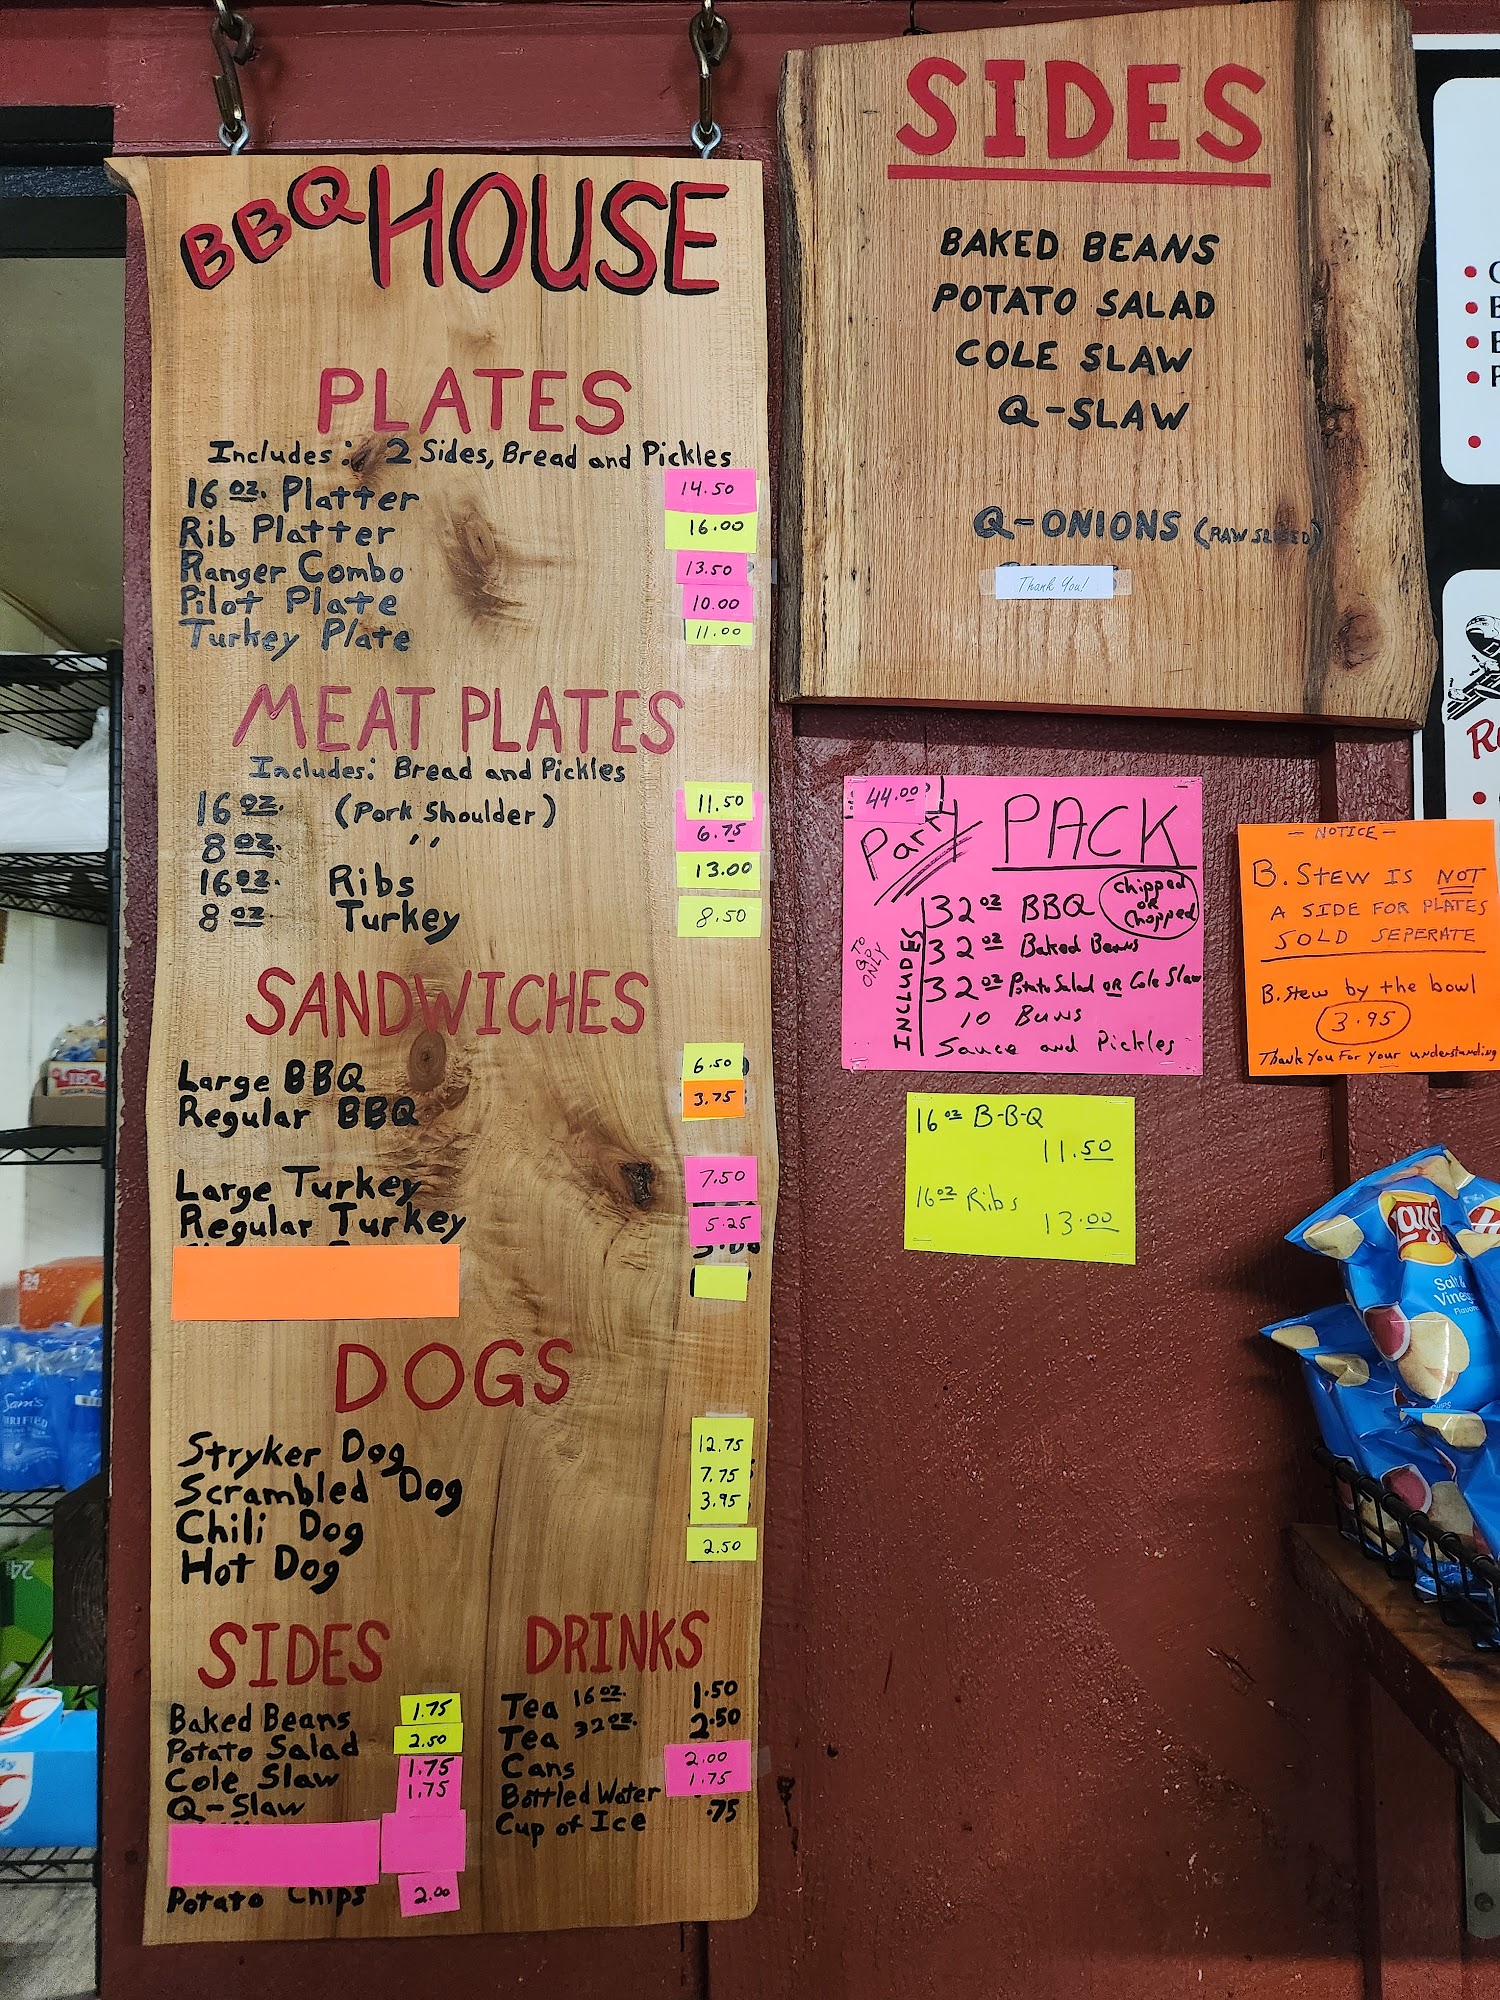 BBQ HOUSE
PLATES
Includes: 2 Sides, Bread and Pickles
16 oz. Platter 14.50
Rib Platter 16.00
Ranger Combo 13.50
Pilot Plate 10.00
Turkey Plate 11.00
MEAT PLATES
Includes: Bread and Pickles
16 oz. (Pork Shoulder) 11.50
8 oz. ,, 6.75
16 oz. Ribs 13.00
8 oz. Turkey 8.50
SANDWICHES
Large BBQ 6.50
Regular BBQ 3.75
Large Turkey 7.50
Regular Turkey 5.25
DOGS
Stryker Dog 12.75
Scrambled Dog 7.75
Chili Dog 3.95
Hot Dog 2.50
SIDES
Baked Beans 1.75
Potato Salad 2.50
Cole Slaw 1.75
Q-Slaw 1.75
Potato Chips 2.00
DRINKS
Tea 16 oz. 1.50
Tea 32 oz. 2.50
Cans 2.00
Bottled Water 1.75
Cup of Ice .75
SIDES
BAKED BEANS
POTATO SALAD
COLE SLAW
Q-SLAW
Q-ONIONS (RAW SLICED)
Thank You!
44.00
Party PACK
TO GO ONLY
INCLUDES
32 oz BBQ Chipped OR Chopped
32 oz Baked Beans
32 oz Potato Salad OR Cole Slaw
10 Buns
Sauce and Pickles
- NOTICE -
B. STEW IS NOT
A SIDE FOR PLATES
SOLD SEPERATE
B. Stew by the bowl
3.95
Thank You For your understanding
16 oz B-B-Q
11.50
16 oz Ribs
13.00
Lay's
Salt &
Sam's
24
24